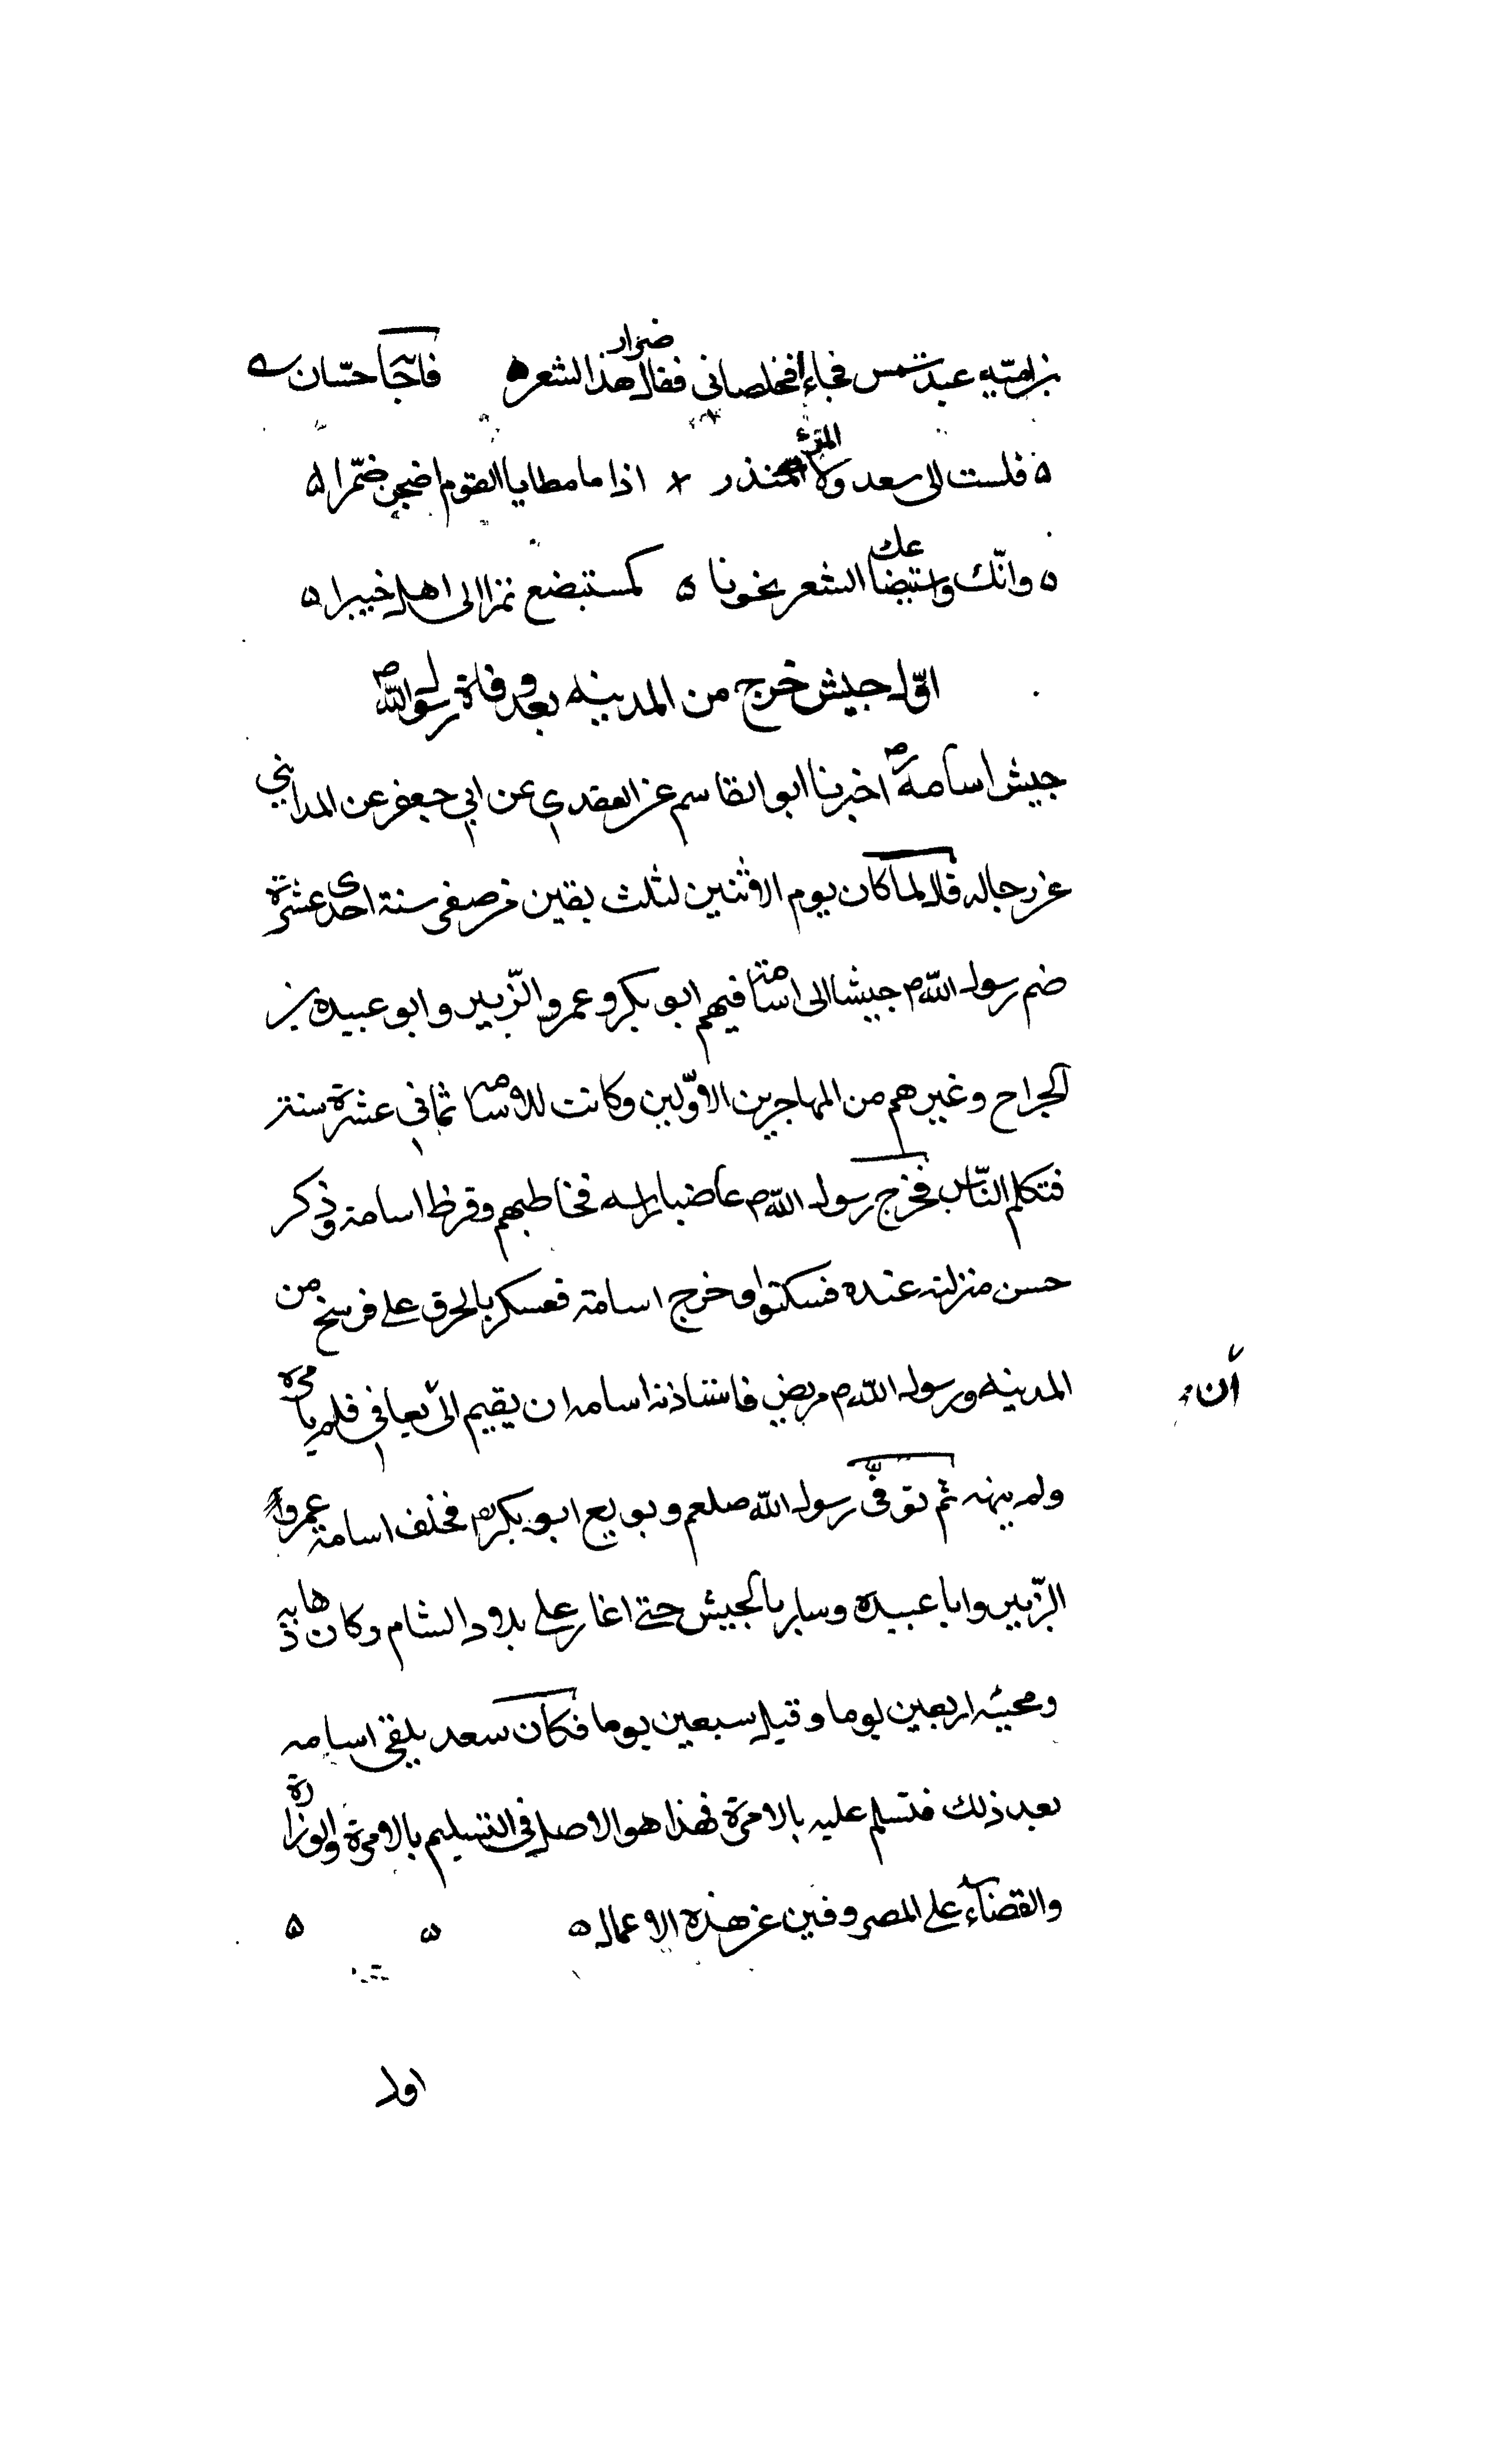 بن اميّه عبد شمس فجاءا فخلصانى فقال ضرار هذا الشعر ه فاجابه حسّان
ه فلست الى سعد ولا المرء منذر × اذا ما مطايا القوم اصبحن ضمّرا ه
ه وانّك واستبضاعك الشعر نحونا ه كمستبضع تمرا الى اهل خيبرا ه
اوّل جيش خرج من المدينه بعد وفاة رسول الله ص
جيش اسامة رض اخبرنا ابو القاسم عن العقدي عن ابي جعفر عن المدايني
عن رجاله قال لما كان يوم الاثنين لثلث بقين من صفر سنة احدى عشرة
ضم رسول الله م جيشا الى اسامة فيهم ابو بكر و عمر والزّبير وابو عبيده بن
الجراح وغيرهم من المهاجرين الاوّلين وكانت للاسامه ثماني عشرة سنة
فتكلم النّاس فخرج رسول الله م عاصبا راسه فخاطبهم وقرظ اسامة وذكر
حسن منزلته عنده فسكتوا وخرج اسامة فعسكر بالجرف على فرسخ من
المدينه ورسول الله م مريض فاستاذنه اسامه ان يقيم الى يعافي فلم يامره
أن
ولم ينهه ثم توفّى رسول الله صلعم وبويع ابو بكر رض فخلف اسامة عمر و
الزّبير وابا عبيدة وسار بالجيش حتى اغار على بلاد الشام وكان ذهابه
ومجيئه اربعين يوما وقيل سبعين يوما فكان سعد يلقى اسامه
بعد ذلك فتسلم عليه بالامرة فهذا هو الاصل في التسليم بالامرة والوزارة
والقضاء على المصروفين عن هذه الاعمال ه ه ه
اول